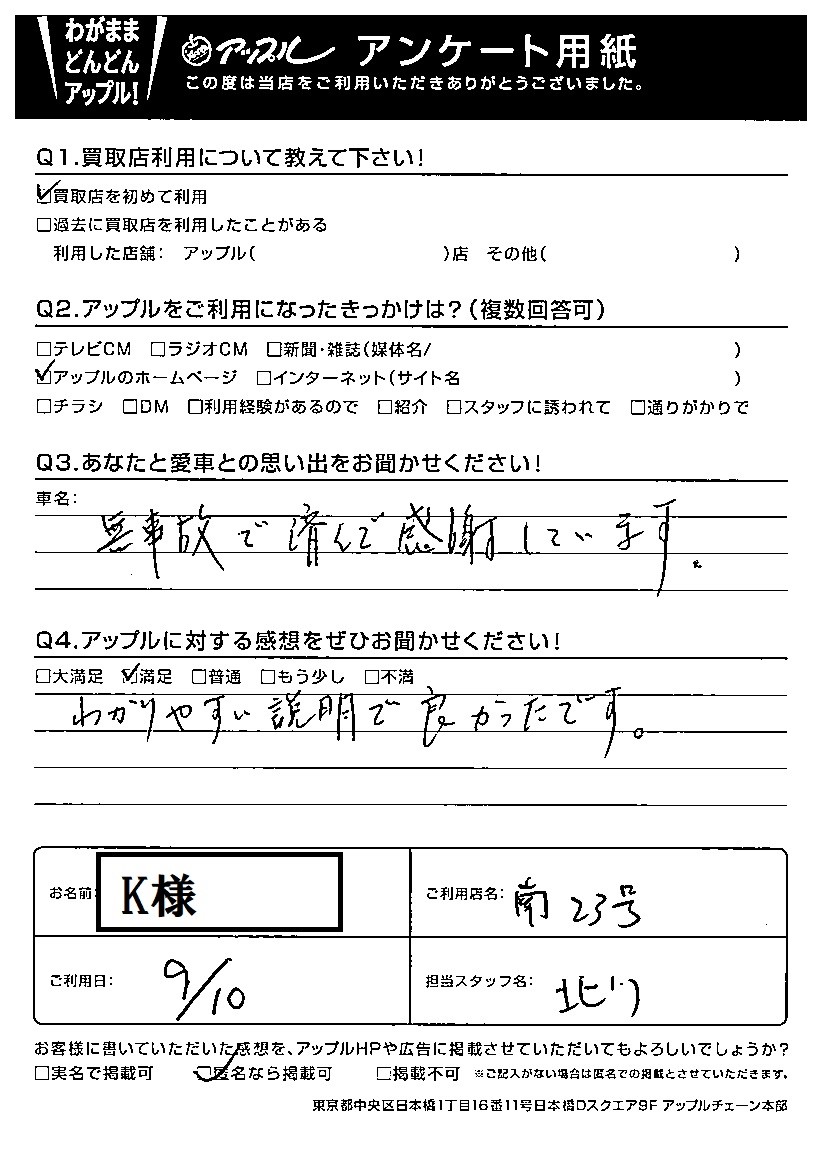 わがまま
どんどん
アップル!
アップル アンケート用紙
この度は当店をご利用いただきありがとうございました。
Q1.買取店利用について教えて下さい!
☑買取店を初めて利用
□過去に買取店を利用したことがある
利用した店舗: アップル( )店 その他( )
Q2.アップルをご利用になったきっかけは?(複数回答可)
□テレビCM □ラジオCM □新聞・雑誌(媒体名/ )
☑アップルのホームページ □インターネット(サイト名 )
□チラシ □DM □利用経験があるので □紹介 □スタッフに誘われて □通りがかりで
Q3.あなたと愛車との思い出をお聞かせください!
車名:
無事故で済んで感謝しています。
Q4.アップルに対する感想をぜひお聞かせください!
□大満足 ☑満足 □普通 □もう少し □不満
わかりやすい説明で良かったです。
お名前: K様
ご利用店名: 南23号
ご利用日: 9/10
担当スタッフ名: 北川
お客様に書いていただいた感想を、アップルHPや広告に掲載させていただいてもよろしいでしょうか?
□実名で掲載可 ☑匿名なら掲載可 □掲載不可 ※ご記入がない場合は匿名での掲載とさせていただきます。
東京都中央区日本橋1丁目16番11号日本橋Dスクエア9F アップルチェーン本部